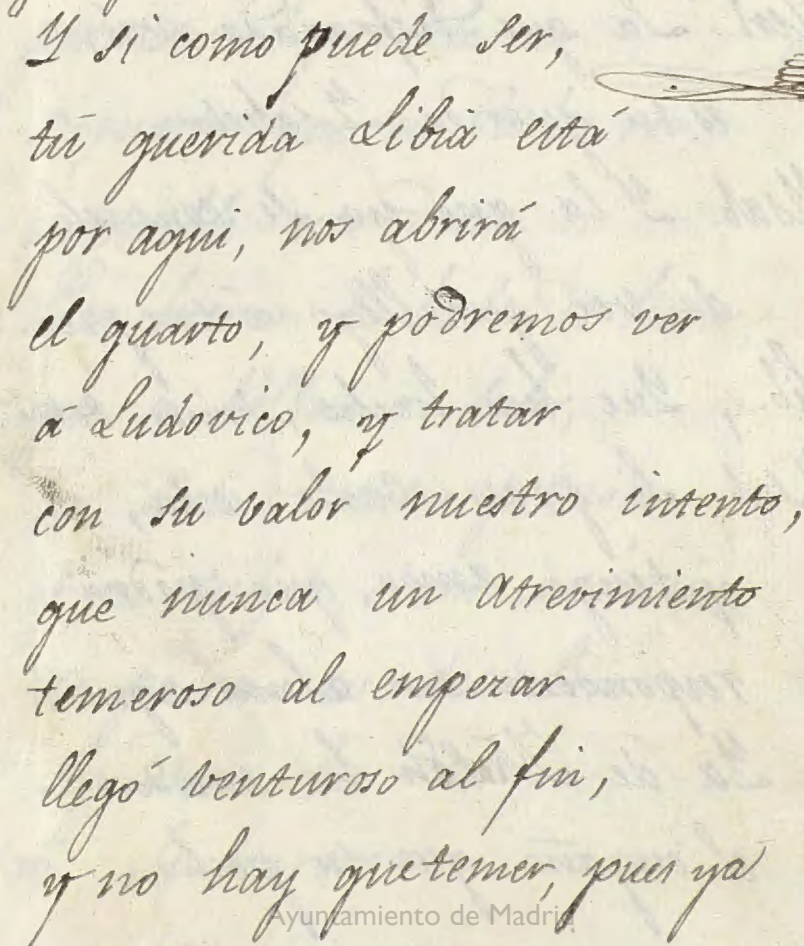 Y si como puede ser,
tú querida Libia está
por aqui, nos abrirá
el quarto, y podremos ver
á Ludovico, y tratar
con su valor nuestro intento,
que nunca un atrevimiento
temeroso al empezar
llegó venturoso al fin,
y no hay que temer, pues ya
Ayuntamiento de Madrid